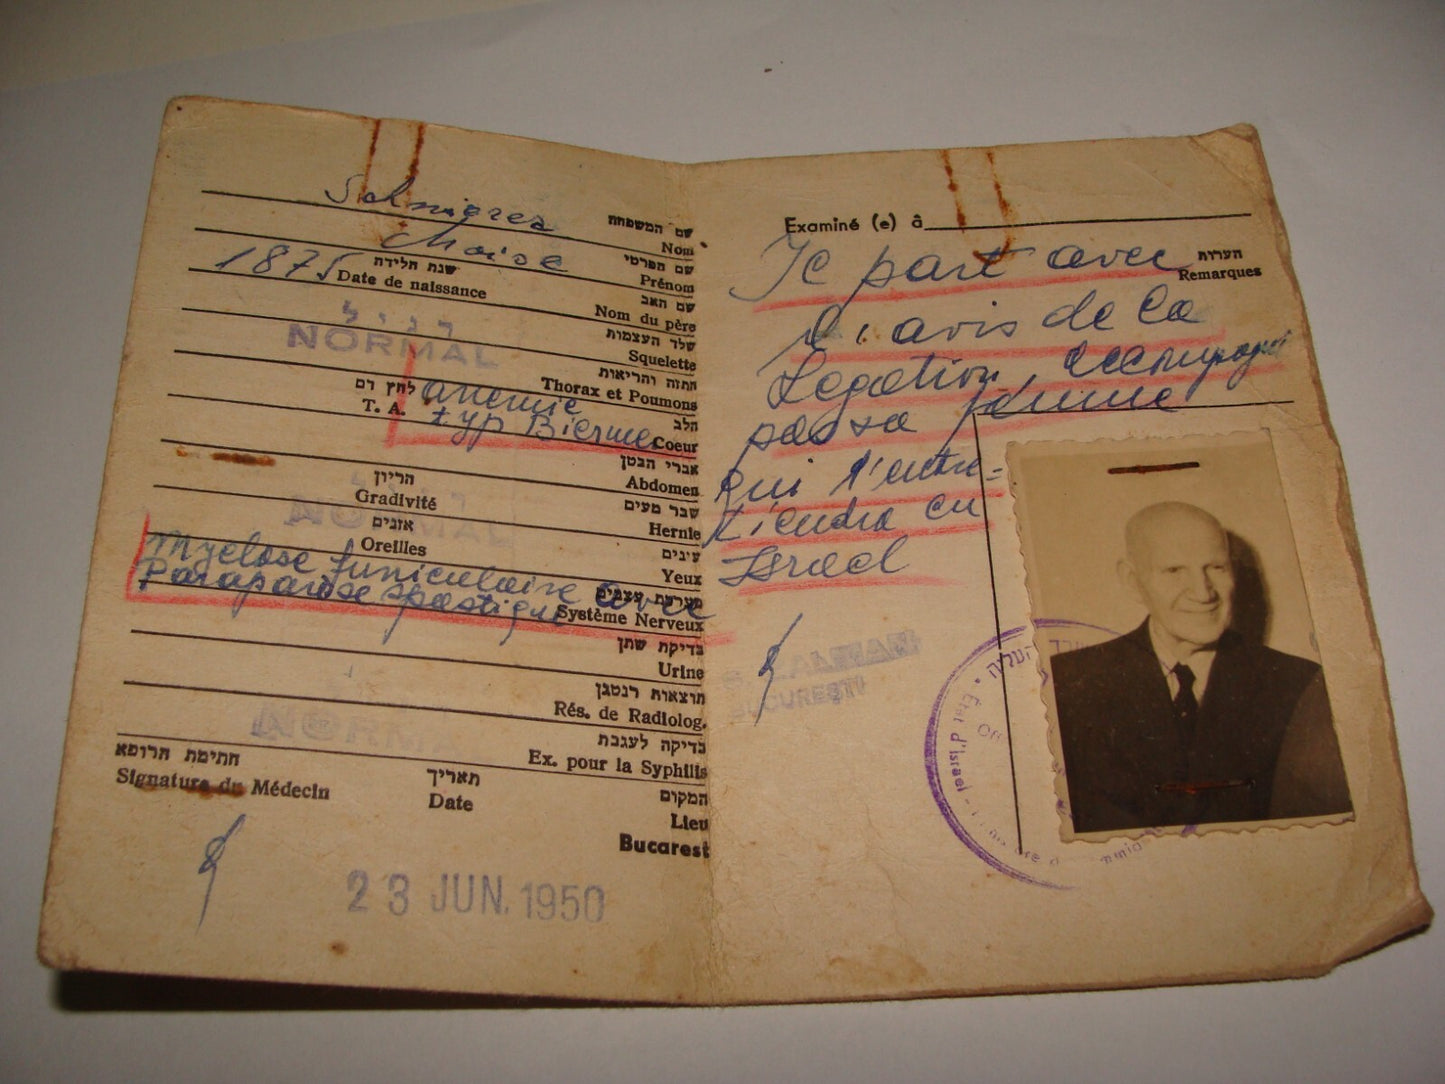 שם המשפחה
Schnierer
Nom
שם הפרטי
Chaise
Prénom
שנת הלידה
1875 Date de naissance
שם האב
Nom du père
רגיל
NORMAL
שלד העצמות
Squelette
החזה והריאות
Thorax et Poumons
לחץ דם
T. A.
anemie
typ Biermer
הלב
Coeur
אברי הבטן
Abdomen
הריון
Gradivité
שבר מעים
Hernie
רגיל
NORMAL
אזנים
Oreilles
עינים
Yeux
Myelose funiculaire avec
Paraparese spastique
מערכת עצבים
Système Nerveux
בדיקת שתן
Urine
תוצאות רנטגן
Rés. de Radiolog.
NORMAL
בדיקה לעגבת
Ex. pour la Syphilis
חתימת הרופא
Signature du Médecin
תאריך
Date
המקום
Lieu
Bucarest
23 JUN. 1950
Examiné (e) â
הערות
Remarques
Ic part avec
l'avis de la
Legation, accompagné
par sa femme
qui l'entre=
tiendra en
Israel
BUCUREȘTI
העליה
Etat d'Israel